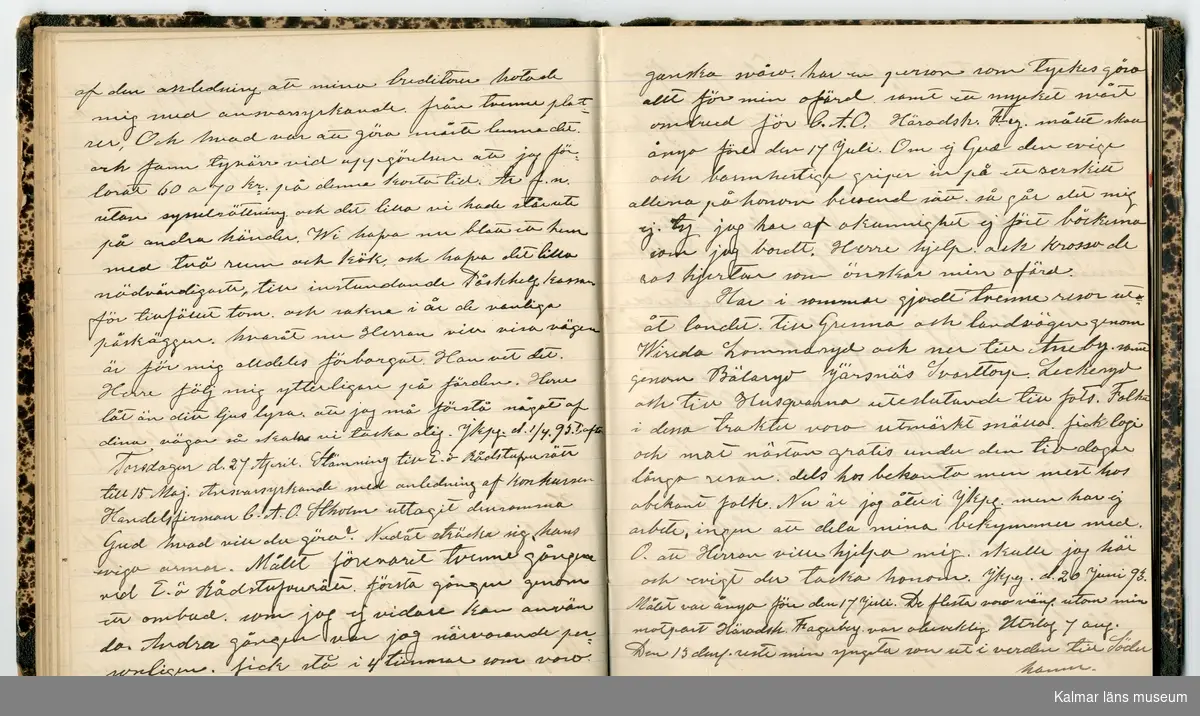 af den anledning att mina Creditorer hotade
mig med ansvarsyrkande. från tvenne plat-
ser, Och hvad var att göra måste lemna det.
och fann tyvärr vid uppgörelsen att jag för-
lorat 60 a 70 kr. på denna korta tid. Är f.n.
utan sysselsättning och det lilla vi hade ute
på andra händer. Wi hafva nu blott ett hem
med två rum och kök, och hafva det lilla
nödvändigaste, till instundande Påskhelg kassan
för tillfället tom. och sakna i år de vanliga
påskäggen. hvaråt nu Herran vill visa vägen
är för mig alldeles förborgat. Han vet det.
Herre följ mig ytterligare på färden. Herre
låt än ditt ljus lysa. att jag må förstå något af
dina vägar så skola vi tacka dig. Jkpg. d. 1/4. 93.
Torsdagen d. 27 April. Stämning till E.ö Rådstufvurätt
till 15 Maj. Ansvarsyrkande med anledning af konkursen
Handelsfirman C. A. O. Stholm uttagit densamma
Gud hvad vill du göra? Nedåt sträcke sig hans
eviga armar. Målet förevarit tvenne gånger
vid E.ö Rådstufvurätt. första gången genom
ett ombud. som jag ej vidare kan använ
da. Andra gången var jag närvarande per-
sonligen. fick stå i 4 timmar som voro
ganska svåra. har en person som tyckes göra
allt för min ofärd. samt ett mycket svårt
ombud för C. A. O. Häradsh. F-g. målet skall
ånyo före den 17 Juli. Om ej Gud den evige
och barmhertige griper in på ett serskilt
allena på honom beroend sätt. så går det mig
ej. ty jag har af okunnighet ej fört böckerna
som jag bordt. Herre hjelp och krossa de
ras hjertan som önskar min ofärd.
Har i sommar gjordt tvenne resor ut-
åt landet. till Grenna och landsvägen genom
Wireda Lommaryd och ner till Aneby. samt
genom Bälaryd Järsnäs Svarttorp. Leckeryd
och till Husqvarna uteslutande till fots. Folket
i dessa trakter voro utmärkt snälla. fick logi
och mat nästan gratis under den tio dagar
långa resan. dels hos bekanta men mest hos
obekant folk. Nu är jag åter i Jkpg men har ej
arbete, ingen att dela mina bekymmer med.
O. att Herran ville hjelpa mig. skulle jag här
och evigt der tacka honom. Jkpg. d. 26 Juni 93.
Målet var ånyo före den 17 Juli. De flesta voro väns. utom min
motpart Häradsh. Fagerberg. var obeveklig. Utslag 7 aug.
Den 13 dens. reste min yngsta son ut i verlden till Söder
hamn.
Kalmar läns museum